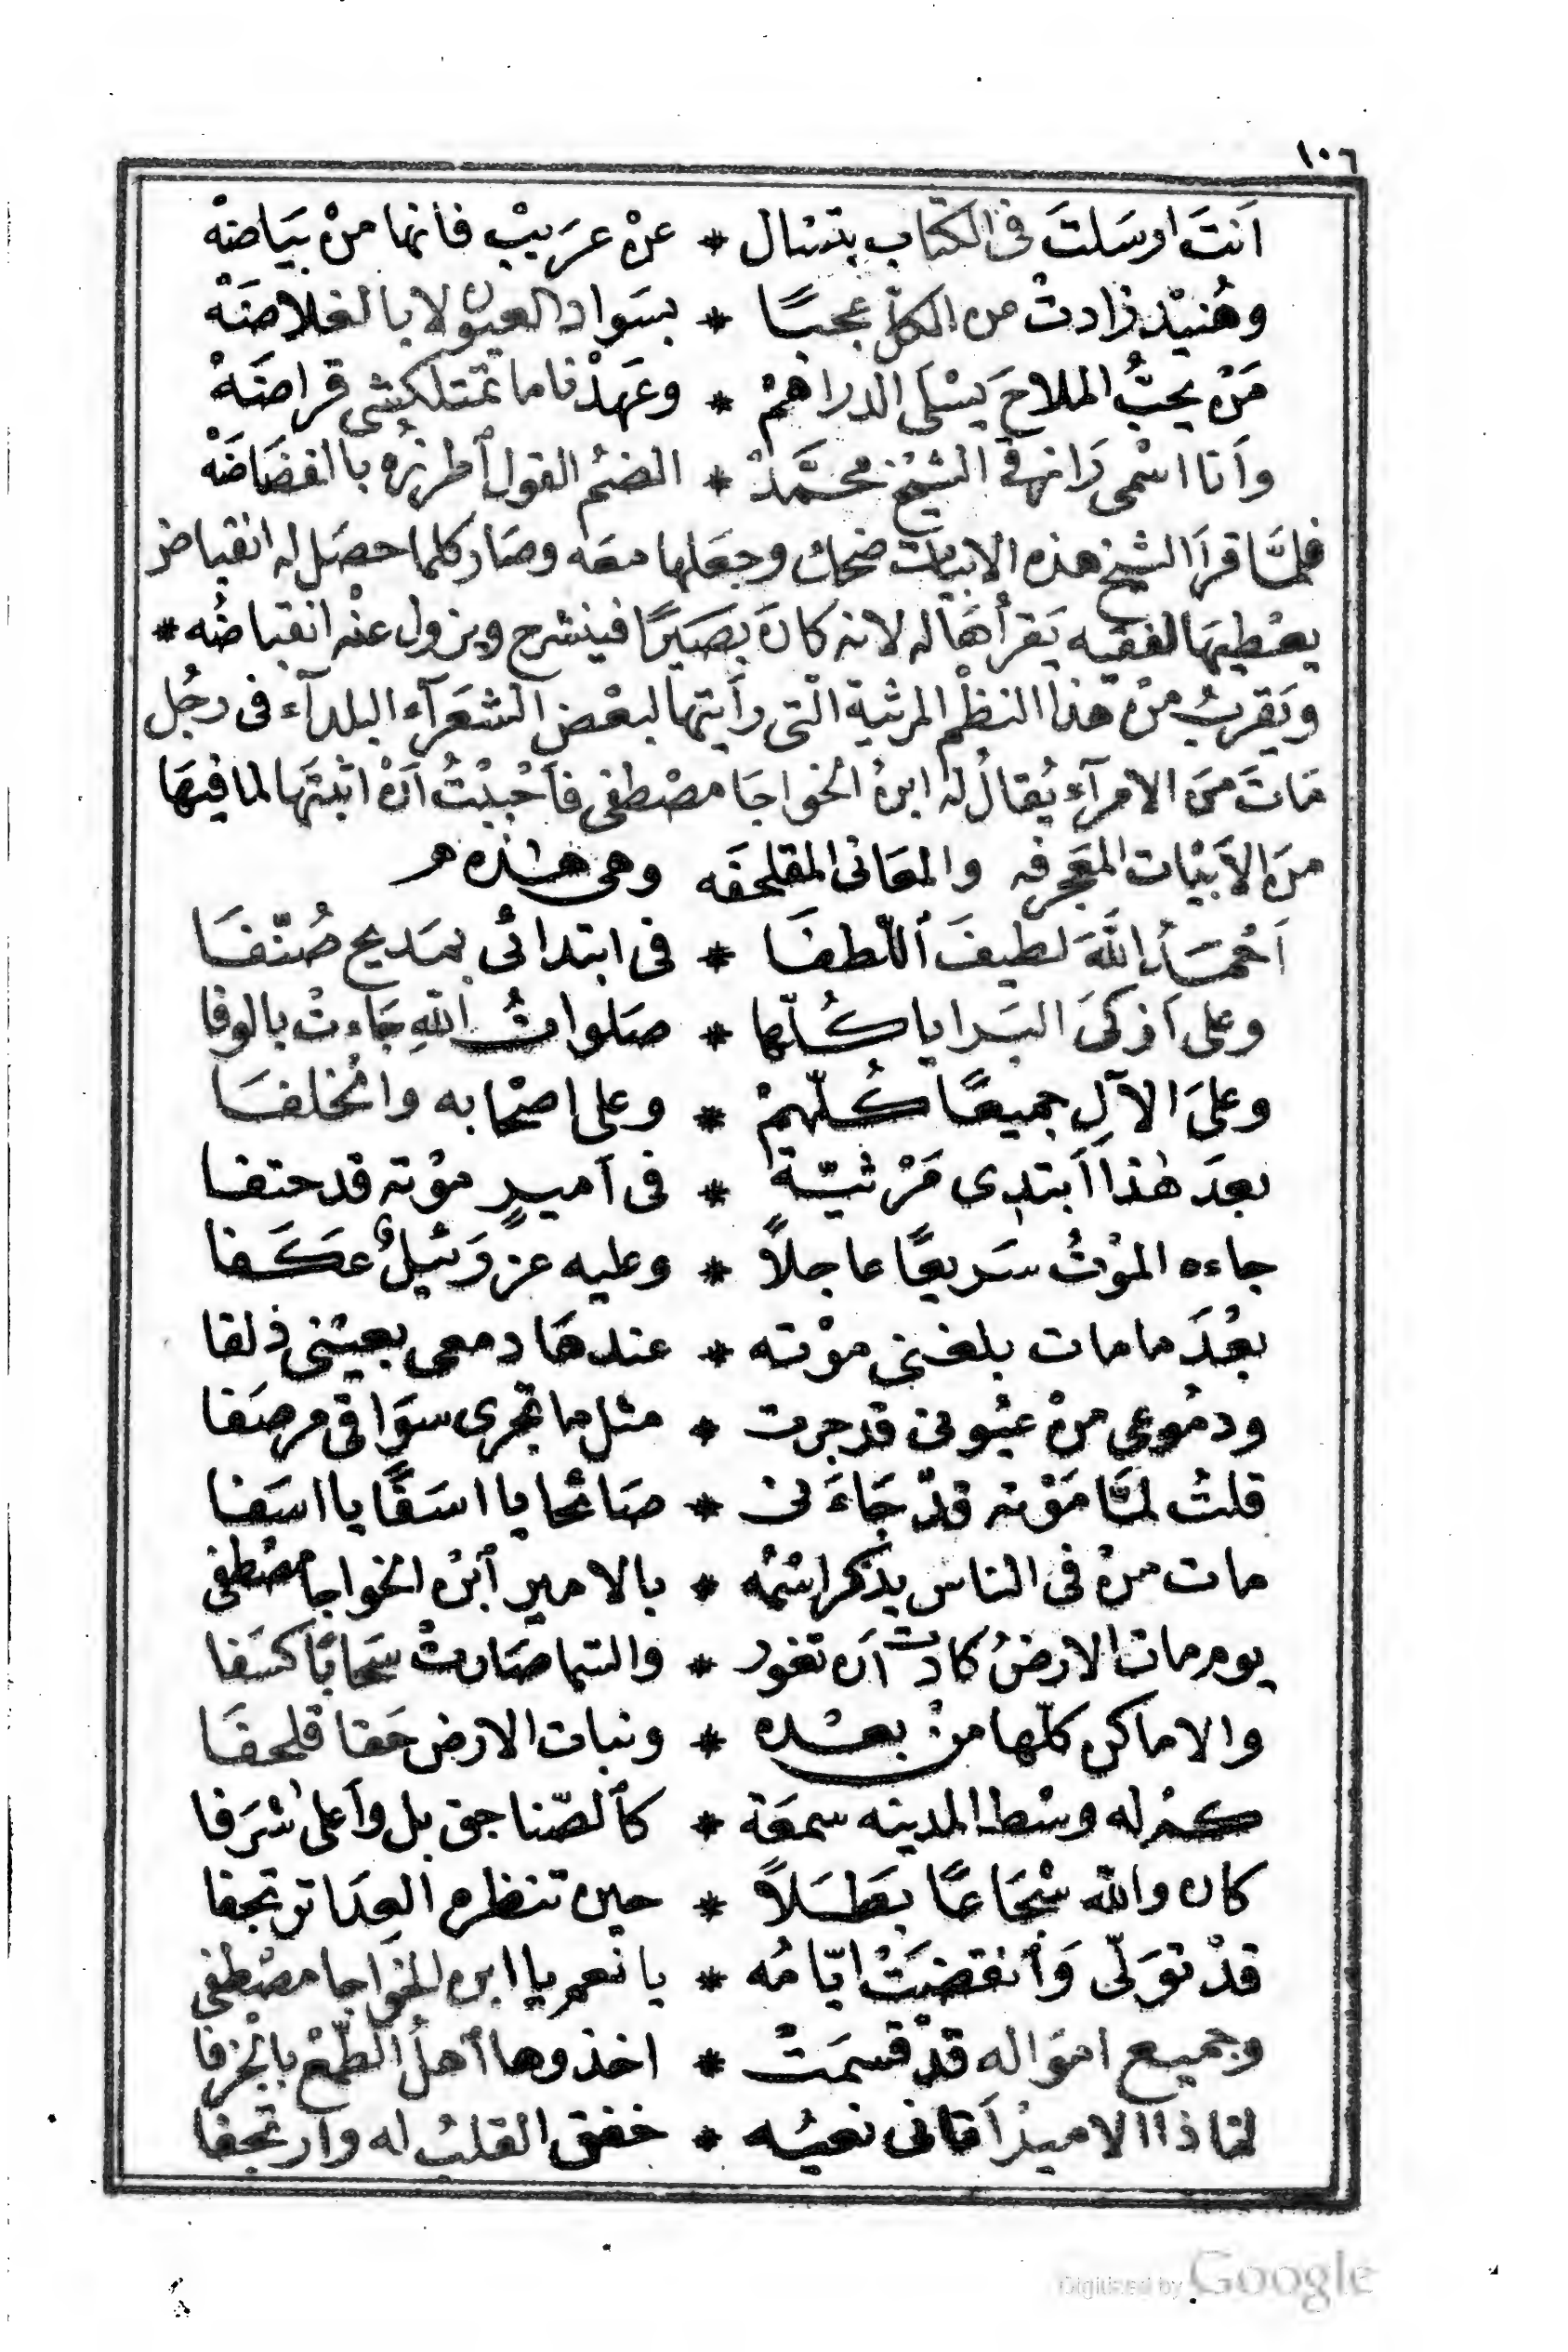 ١٠٦
اَنتَ ارسَلتَ فى الكتاب بتسال * عنْ عرَيبْ فانها منْ بيَاضَهْ
وهُنيْد زادتْ من الكلّ عجبًا * بسَواد العيون لا بالغلاضَهْ
مَنْ يحبُّ الملاحَ يسْلَى الدراهمْ * وعَهدْنا ما تمتلكشى قراضَهْ
وآنا اسْمى الشيخ محمَّدْ * القول اطرزُه بالفضَاضَهْ
فلمَّا قرأ الشيخ هذه الابيات ضحك وجعَلها معَه وصَار كلما حصَل له انقباض
يعْطيهَا لفقيه يَقرأهَا له لانه كانَ بصَيرًا فينشرح ويزول عنْه انقباضُه *
ويَقربُ منْ هَذا النظْم المرثية الّتى رأيتها لبعْض الشعَرآء البلدآء فى رجُل
مَاتَ منَ الامرآء يُقالُ لهُ ابنُ الخواجَا مصْطفى فاَحْببْتُ اَنْ اثبتَها لما فيهَا
منَ الاَبيْات المعَجرفه والمعَانى المقلحفَه وهى هٰذه
اَحْمَدُ اللهَ لطيفَ اللّطفَا * فى ابتدائى بمَديح صُنّفَا
وعلى اَزكىَ البَرايا كُلّها * صَلواتُ اللهِ جَاءتْ بالوفا
وعلىَ الآلِ جميعًا كُلّهمْ * وعلى اصْحابه والخلفَا
بعدَ هٰذا اَبتدى مَرْثيّةً * فى اَميرٍ موْته قد حتفا
جاءه الموْتُ سَريعًا عاجلاً * وعليه عزرَئيلُ عكَفا
بعْدَ ما مات بلغنى موْته * عندهَا دمعى بعيْنى ذلفا
ودمُوعى منْ عيُونى قد جرت * مثل ما تجرى سوَاقى مرصَفا
قلتُ لمَّا مَوْته قدْ جَاءَنى * صَائحا يا اسَفًا يا اسَفا
مات منْ فى الناس يذكر اسْمُه * بالامير ابْن الخواجا مصْطفى
يوم مات الارضُ كادت اَن تغور * والسما صَارتْ سَحابًا كسَفا
والاماكن كلّها منْ بعْده * ونبات الارض حَقا قلحفَا
كمْ له وسْط المدينه سمعَة * كالصّناجق بل واَعلى اشْرَفا
كان والله شجَاعًا بَطَلاً * حين تنظره العِدَا ترتجفا
قدْ توَلّى وَانقضَتْ ايّامُه * يا نعم يا ابن الخواجا مصْطفى
وجميع اموَاله قدْ قسمَتْ * اخذوها اهلُ الطّمعْ بالجُزفا
لما ذا الاميرْ اَتانى نعيُه * خفق القلبُ له وارتجفا
Digitized by Google